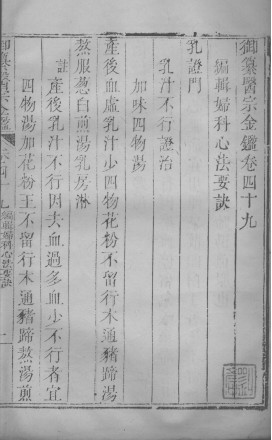 御纂醫宗金鑑卷四十九
編輯婦科心法要訣
乳證門
乳汁不行證治
加味四物湯
產後血虛乳汁少四物花粉不留行木通豬蹄湯
熬服葱白煎湯乳房淋
註
產後乳汁不行因去血過多血少不行者宜
四物湯加花粉王不留行木通豬蹄熬湯煎
御纂醫宗金鑑
卷四十九
編輯婦科心法要訣
一